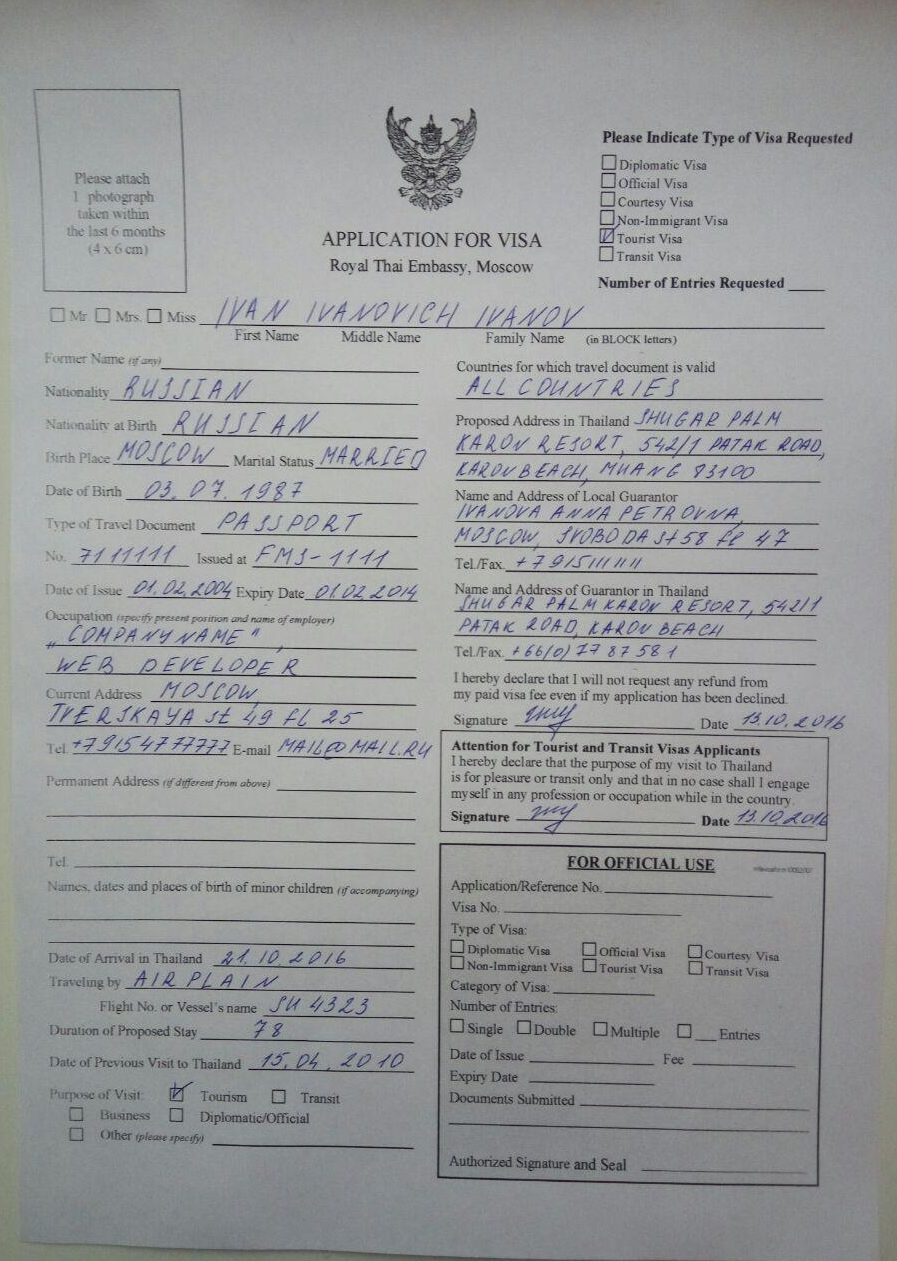 Please attach
1 photograph
taken within
the last 6 months
(4 x 6 cm)
APPLICATION FOR VISA
Royal Thai Embassy, Moscow
Please Indicate Type of Visa Requested
Diplomatic Visa
Official Visa
Courtesy Visa
Non-Immigrant Visa
Tourist Visa
Transit Visa
Number of Entries Requested
Mr. Mrs. Miss IVAN IVANOVICH IVANOV
First Name Middle Name Family Name (in BLOCK letters)
Former Name (if any)
Nationality RUSSIAN
Nationality at Birth RUSSIAN
Birth Place MOSCOW Marital Status MARRIED
Date of Birth 03. 07. 1987
Type of Travel Document PASSPORT
No. 7111111 Issued at FMS-1111
Date of Issue 01.02.2004 Expiry Date 01.02.2014
Occupation (specify present position and name of employer)
„COMPANY NAME",
WEB DEVELOPER
Current Address MOSCOW,
TVERSKAYA st 49 fl 25
Tel. +79154777777 E-mail MAIL@MAIL.RU
Permanent Address (if different from above)
Tel.
Names, dates and places of birth of minor children (if accompanying)
Date of Arrival in Thailand 21. 10. 2016
Traveling by AIR PLAIN
Flight No. or Vessel's name SU 4323
Duration of Proposed Stay 78
Date of Previous Visit to Thailand 15. 04. 2010
Purpose of Visit: Tourism Transit
Business Diplomatic/Official
Other (please specify)
Countries for which travel document is valid
ALL COUNTRIES
Proposed Address in Thailand SHUGAR PALM
KARON RESORT, 542/1 PATAK ROAD,
KARON BEACH, MUANG 83100
Name and Address of Local Guarantor
IVANOVA ANNA PETROVNA,
MOSCOW, SVOBODA st 58 fl 47
Tel./Fax. +7915111111
Name and Address of Guarantor in Thailand
SHUGAR PALM KARON RESORT, 542/1
PATAK ROAD, KARON BEACH
Tel./Fax. +66(0)77 87 581
I hereby declare that I will not request any refund from
my paid visa fee even if my application has been declined.
Signature Date 13.10.2016
Attention for Tourist and Transit Visas Applicants
I hereby declare that the purpose of my visit to Thailand
is for pleasure or transit only and that in no case shall I engage
myself in any profession or occupation while in the country.
Signature Date 13.10.2016
FOR OFFICIAL USE
Application/Reference No.
Visa No.
Type of Visa:
Diplomatic Visa Official Visa Courtesy Visa
Non-Immigrant Visa Tourist Visa Transit Visa
Category of Visa:
Number of Entries:
Single Double Multiple Entries
Date of Issue Fee
Expiry Date
Documents Submitted
Authorized Signature and Seal